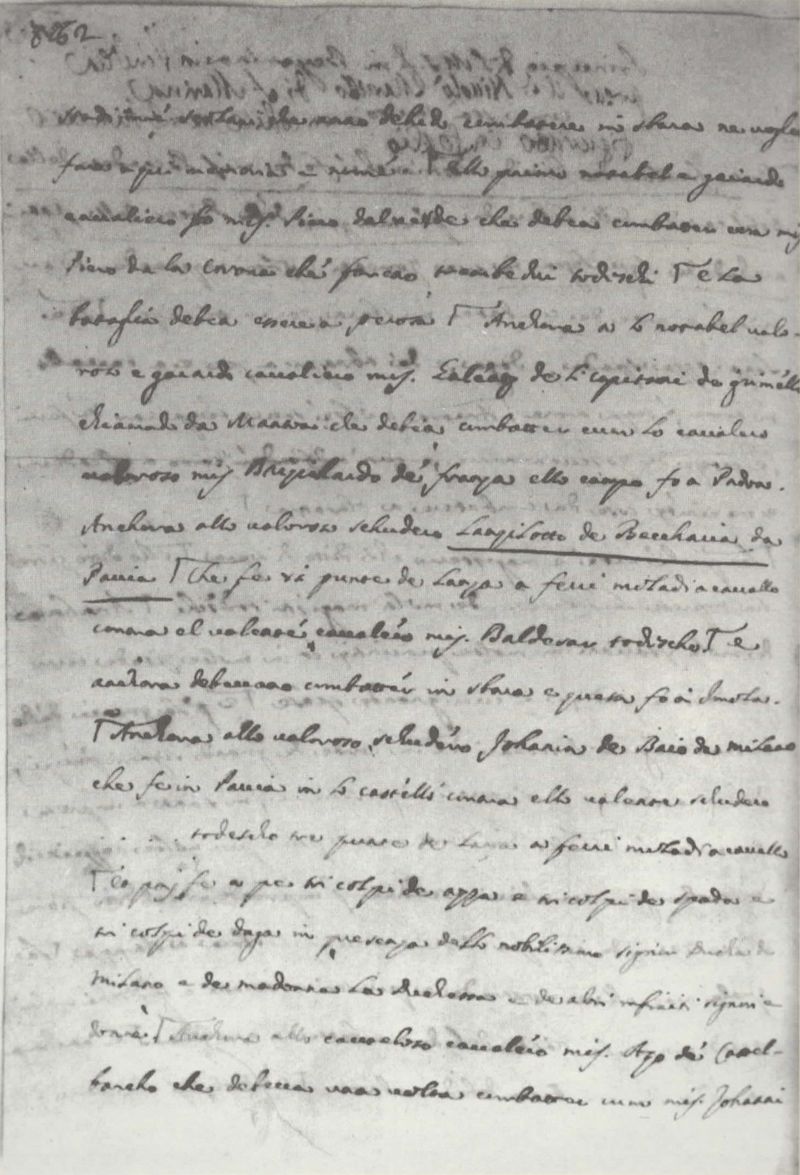 debud combattere in sbara ne voglio
fare primo notabel e gaiardo
cavaliero fo mis. Piero dal verde che debea combatter cum mis.
Piero da la Corona che foreno todeschi E la
bataglia debea essere a perosa Anchora a lo notabel valo-
roso e gaiardo cavaliero mis. Galeaz de li capitani de grimello
chiamado da Mantoa che debea combatter cum lo cavaliero
valoroso mis. Buzichardo de franza ello campo fo a Padoa.
Anchora allo valoroso schudero Lanzilotto de Becharia da
Pavia Che fe vi punte de Lanza a ferri moladi a cavallo
contra el valente cavalero mis. Baldesar todescho E
anchora debevano combatter in sbara e questa fo a Imola.
Anchora allo valoroso schudero Johanin de Baio da milano
che fe in Pavia in lo castello contra ello valente schudero
. . . . todescho tre punte de Lanza a ferri moladi a cavallo
E poy fe a pe tri colpi de azza e tri colpi de spada e
tri colpi de daga in presenza dello nobilissimo signor Ducha de
Milano e de madonna La Duchessa e de altri infiniti signori e
donne Anchora allo cauteloso cavalero mis. Azo de Castel-
barcho che debeva una volta combatter cum mis. Johanni